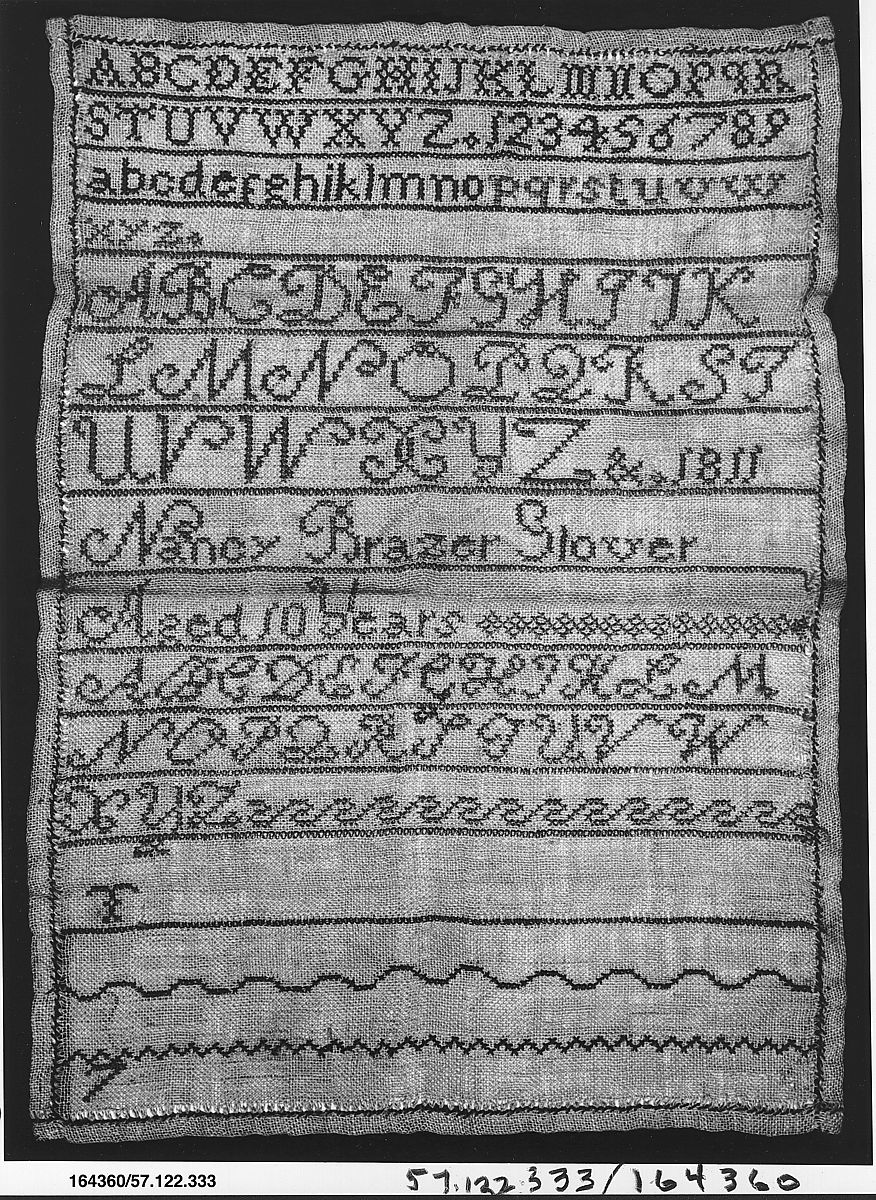 ABCDEFGHIJKLMNOPqR
STUVWXYZ.123456789
abcdefghiklmnopqrstuvw
xyz.
ABCDEFGHIJK
LMNOPQRST
UVWXYZ&.1811
Nancy Brazer Glover
Aged 10 Years
ABCDEFGHIKLM
NOPQRSTUVW
XYZ
T
7
164360/57.122.333
57.122.333/164360